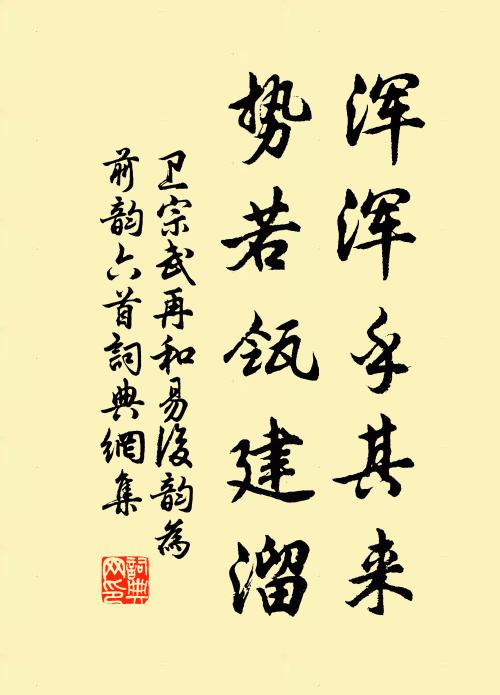 浑浑乎其来
势若瓴建溜
卫宗武再和易后韵为
前韵六首词典網集
詞典网印